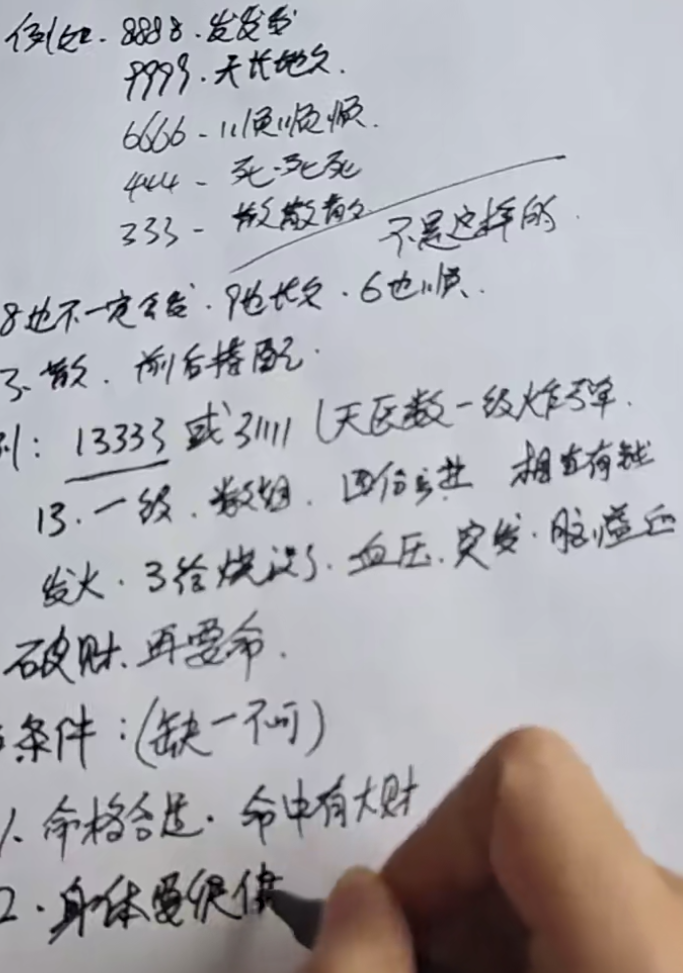 例如.8888.发发发
9999.天长地久.
6666-顺顺顺.
444-死.死死
333-散散散
不是这样的.
8也不一定会发.9也长久.6也顺.
3.散.前后搭配.
例:13333或31111(天医数一级炸弹.
13.一级.数组.四个 相当有钱
发火.3给烧没了.血压.突发.脑溢血
破财.再要命.
条件:(缺一不可)
1.命格合适.命中有大财
2.身体要很健